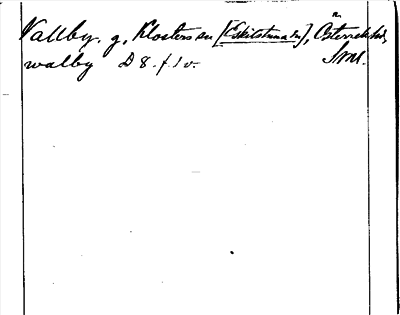 Vallby, g, Klosters sn [Eskilstuna sn], Österrekarne hd,
walby D 8. f. 1 v. Srml.